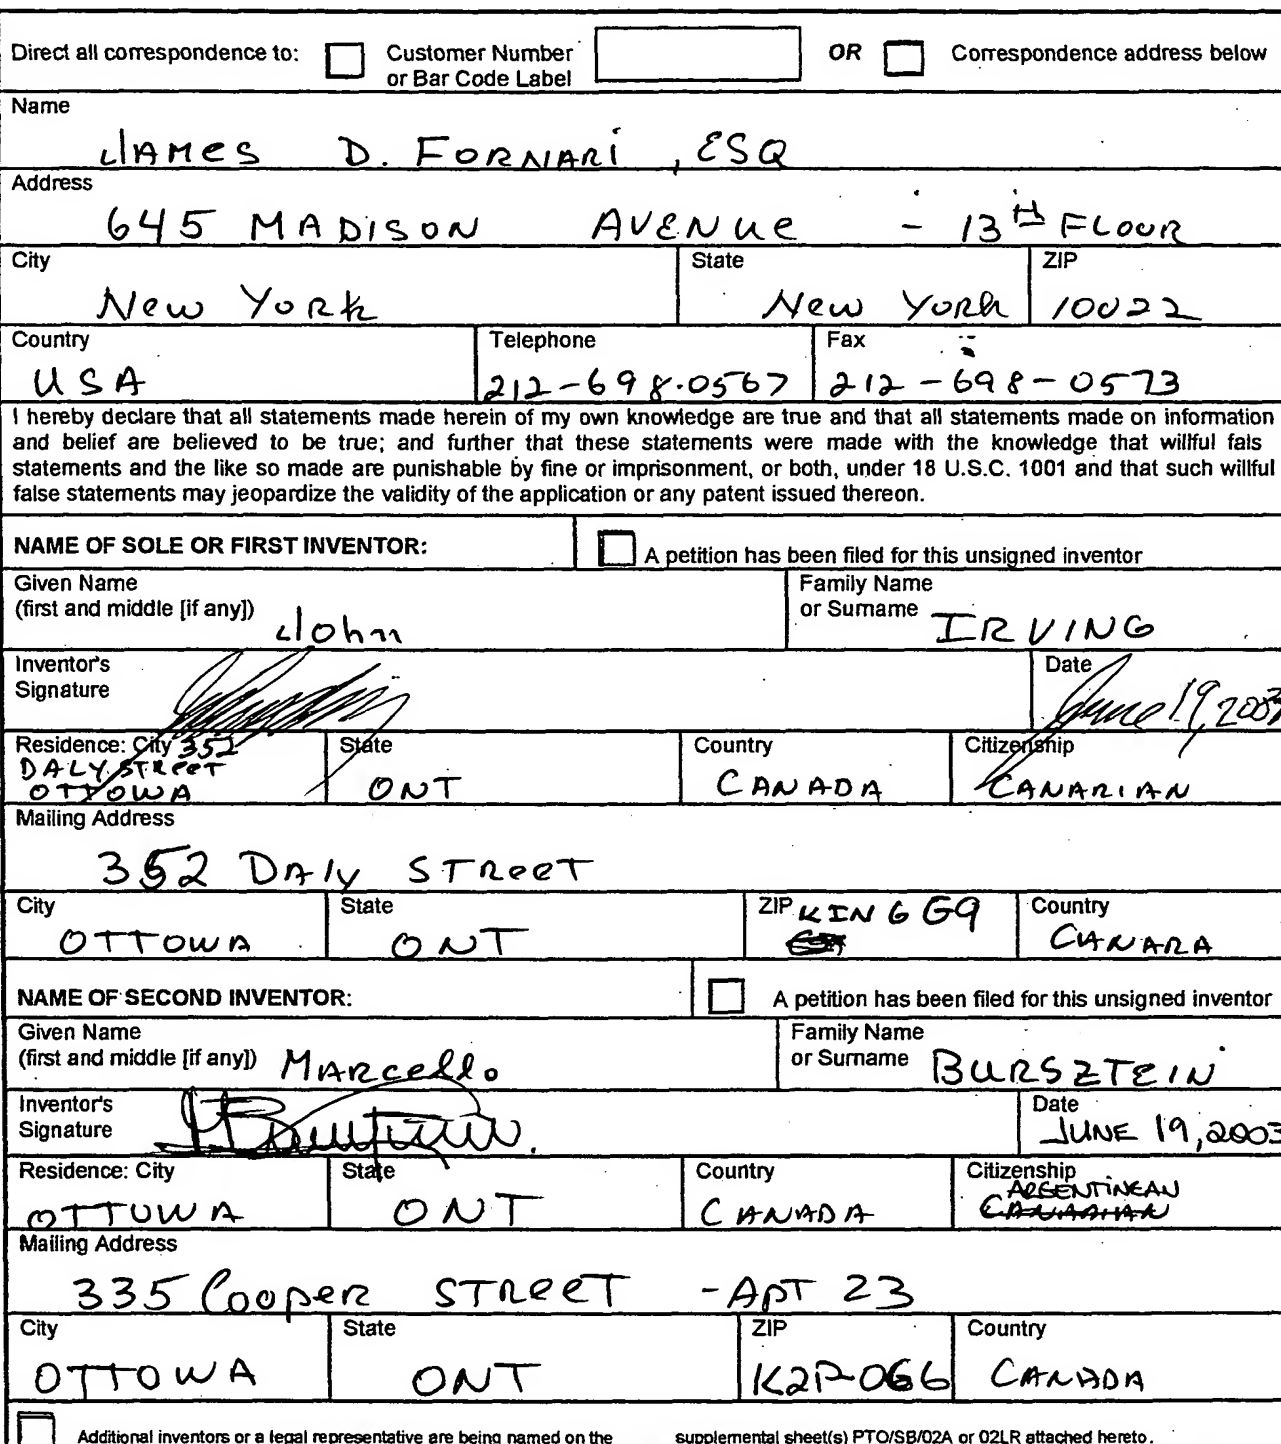 Direct all correspondence to: Customer Number or Bar Code Label OR Correspondence address below
Name
JAMES D. FORNARI, ESQ
Address
645 MADISON AVENUE - 13th FLOOR
City State ZIP
New York New York 10022
Country Telephone Fax
USA 212-698-0567 212-698-0573
I hereby declare that all statements made herein of my own knowledge are true and that all statements made on information
and belief are believed to be true; and further that these statements were made with the knowledge that willful fals
statements and the like so made are punishable by fine or imprisonment, or both, under 18 U.S.C. 1001 and that such willful
false statements may jeopardize the validity of the application or any patent issued thereon.
NAME OF SOLE OR FIRST INVENTOR: A petition has been filed for this unsigned inventor
Given Name Family Name
(first and middle [if any]) John or Surname IRVING
Inventor's Date
Signature June 19, 2003
Residence: City 352 State Country Citizenship
DALY STREET
OTTOWA ONT CANADA CANARIAN
Mailing Address
352 DAly STReeT
City State ZIP KING G9 Country
OTTOWA ONT CANARA
NAME OF SECOND INVENTOR: A petition has been filed for this unsigned inventor
Given Name Family Name
(first and middle [if any]) MARCello or Surname BURSZTEIN
Inventor's Date
Signature JUNE 19, 2003
Residence: City State Country Citizenship
ARGENTINEAN
OTTUWA ONT CANADA CANADIAN
Mailing Address
335 Cooper STReeT - APT 23
City State ZIP Country
OTTOWA ONT K2P-0G6 CANADA
Additional inventors or a legal representative are being named on the supplemental sheet(s) PTO/SB/02A or 02LR attached hereto.